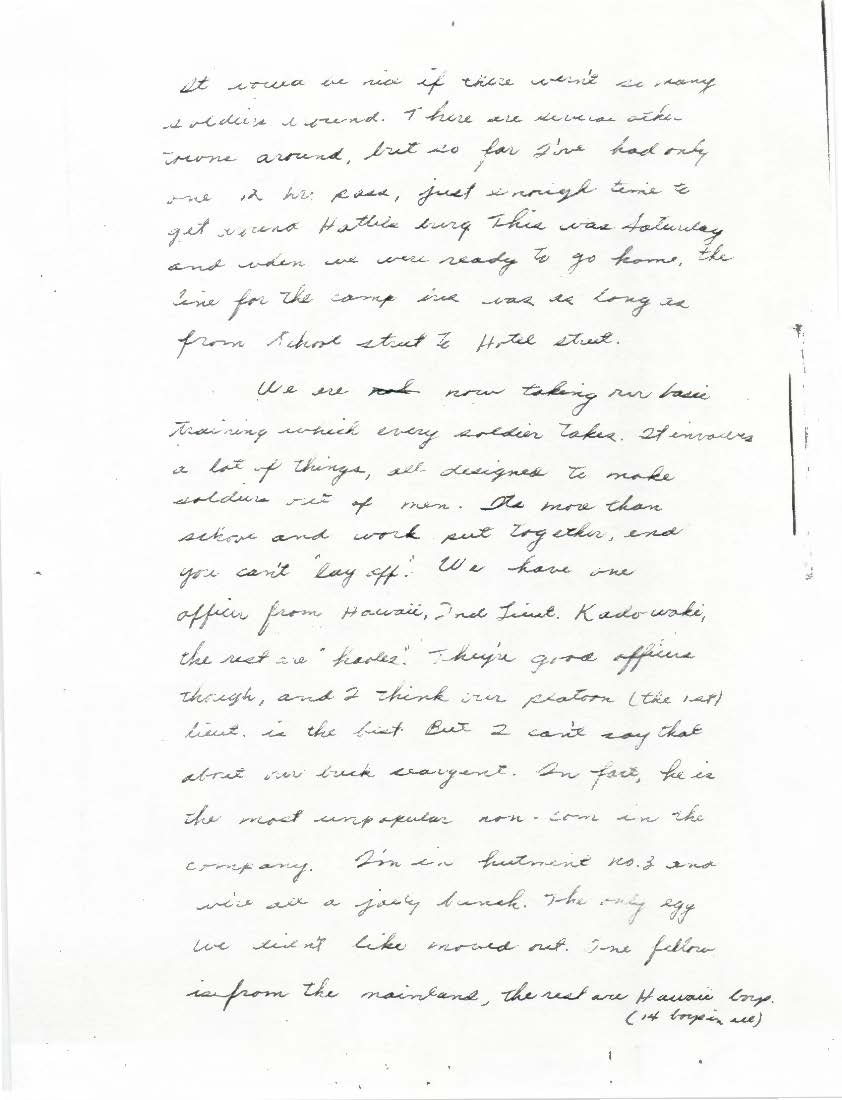 It would be nice if there weren't so many
soldiers around. There are several other
towns around, but so far I've had only
one 12 hr. pass, just enough time to
get around Hattiesburg This was Saturday
and when we were ready to go home, the
line for the camp bus was as long as
from School street to Hotel street.
We are now taking our basic
training which every soldier takes. It involves
a lot of things, all designed to make
soldiers out of men. Its more than
school and work put together, and
you can't "lay off". We have one
officer from Hawaii, 2nd Lieut. Kadowaki,
the rest are "haoles". They're good officers
though, and I think our platoon (the 1st)
lieut. is the best. But I can't say that
about our buck seargent. In fact, he is
the most unpopular non-com in the
company. I'm in hutment no. 3 and
we're all a jolly bunch. The only egg
we didn't like moved out. One fellow
is from the mainland, the rest are Hawaii boys.
(14 boys in all)